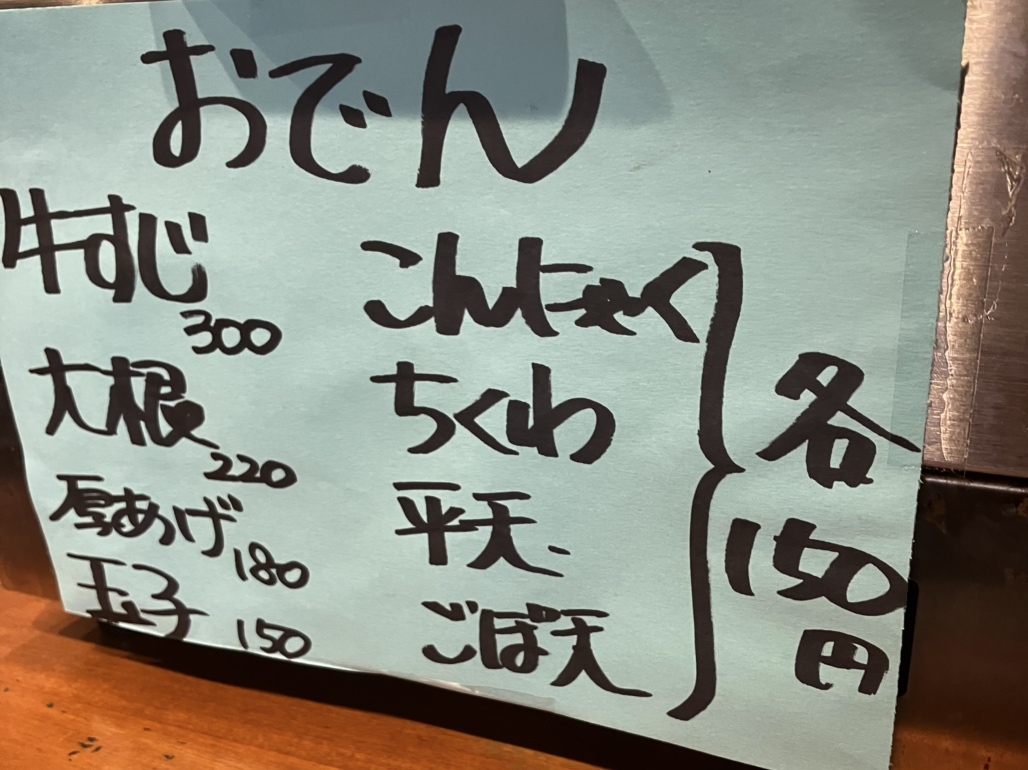 おでん
牛すじ
300
大根
220
厚あげ
180
玉子 150
こんにゃく
ちくわ
平天
ごぼ天
各
150
円